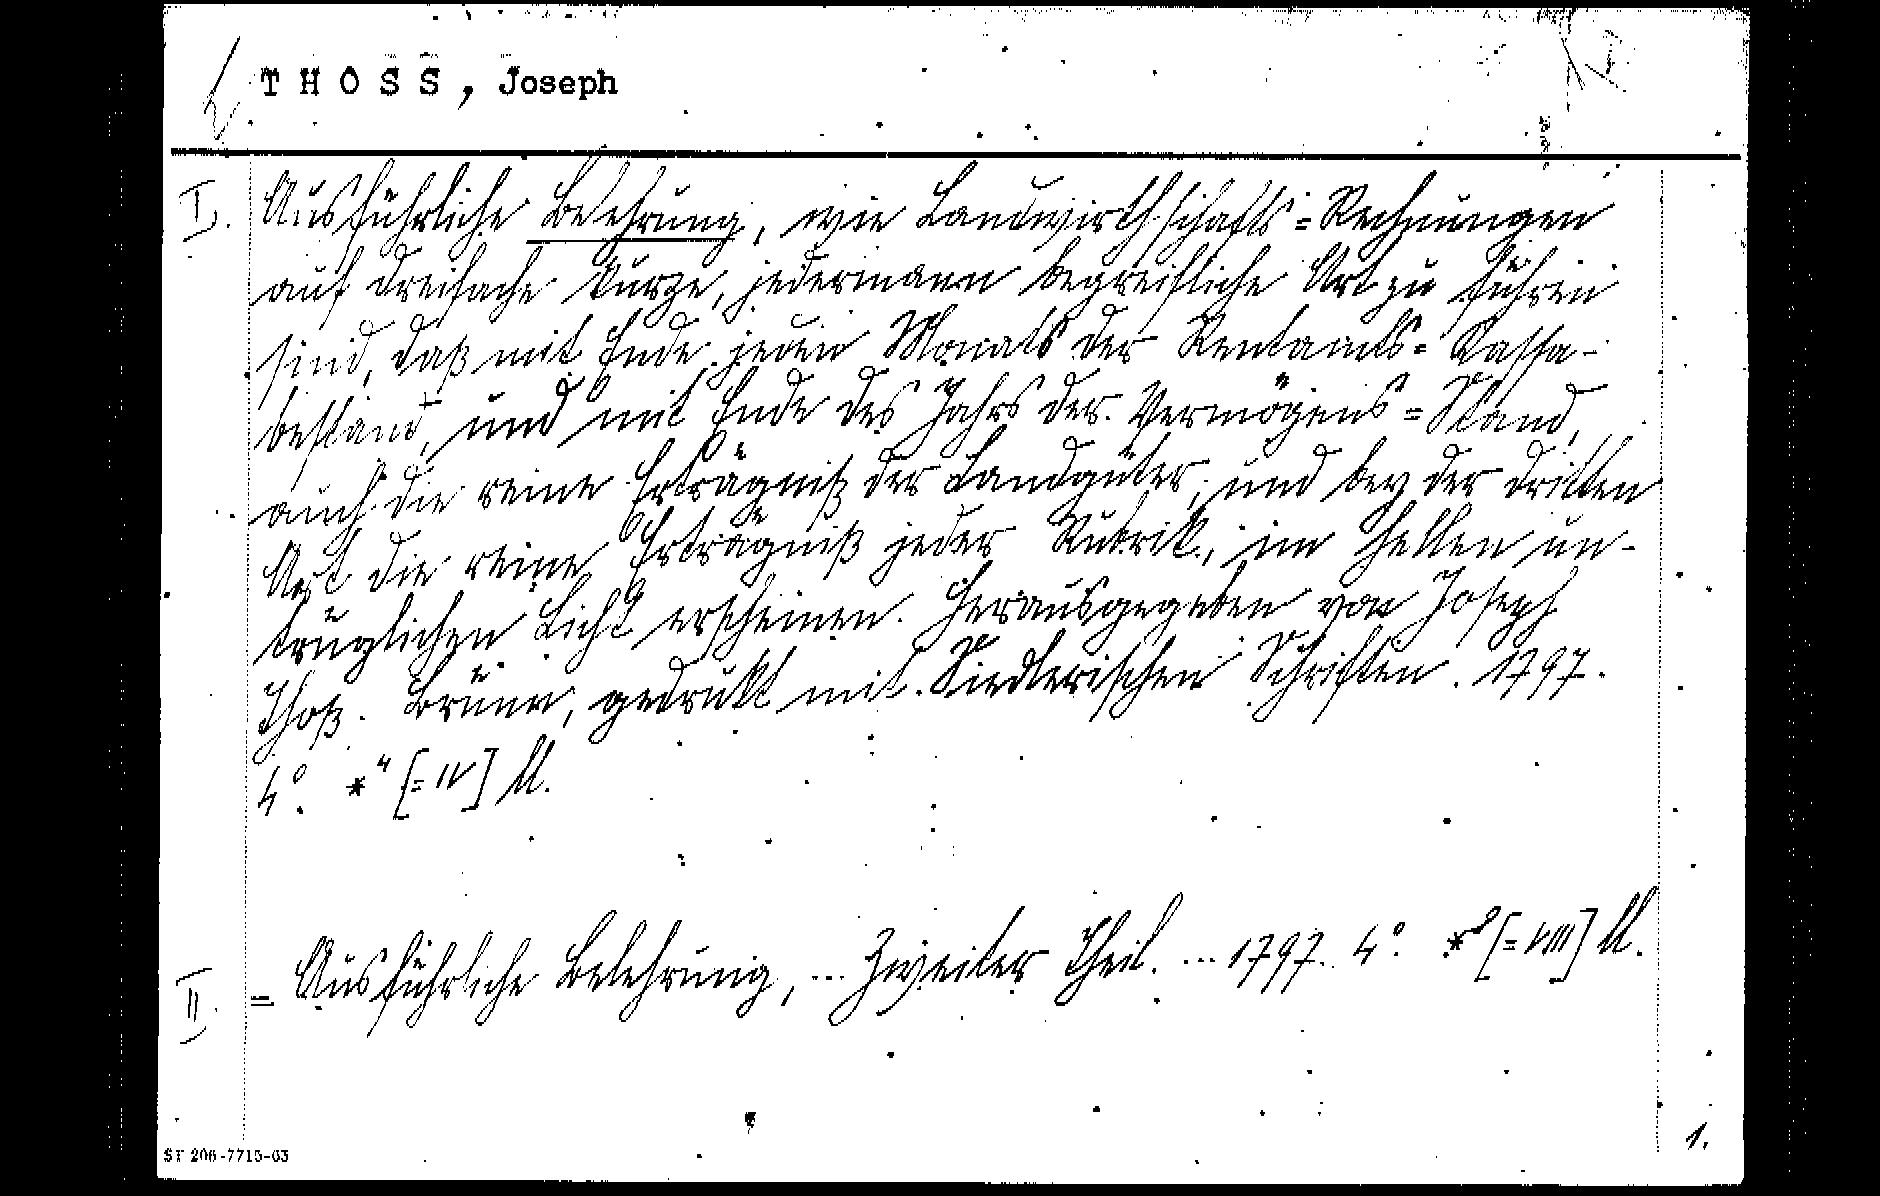 THOSS, Joseph
I. Ausführliche Belehrung, wie Landwirthschafts=Rechnungen
auf dreifache kurze, jedermann begreifliche Art zu führen
sind, daß mit Ende jeden Monats der Rentamts=Kassa-
bestand, und mit Ende des Jahrs der Vermögens=Stand,
auch die reine Erträgniß der Landgüter, und bey der dritten
Art die reine Erträgniß jeder Rubrik, im hellen un-
trüglichen Licht erscheinen. Herausgegeben von Joseph
Thoß. Brünn, gedrukt mit Siedlerischen Schriften. 1797.
4°. *4 [=IV] Bl.
II. = Ausführliche Belehrung, ... Zweiter Theil. ... 1797. 4°. *8 [=VIII] Bl.
1.
ST 206-7715-63